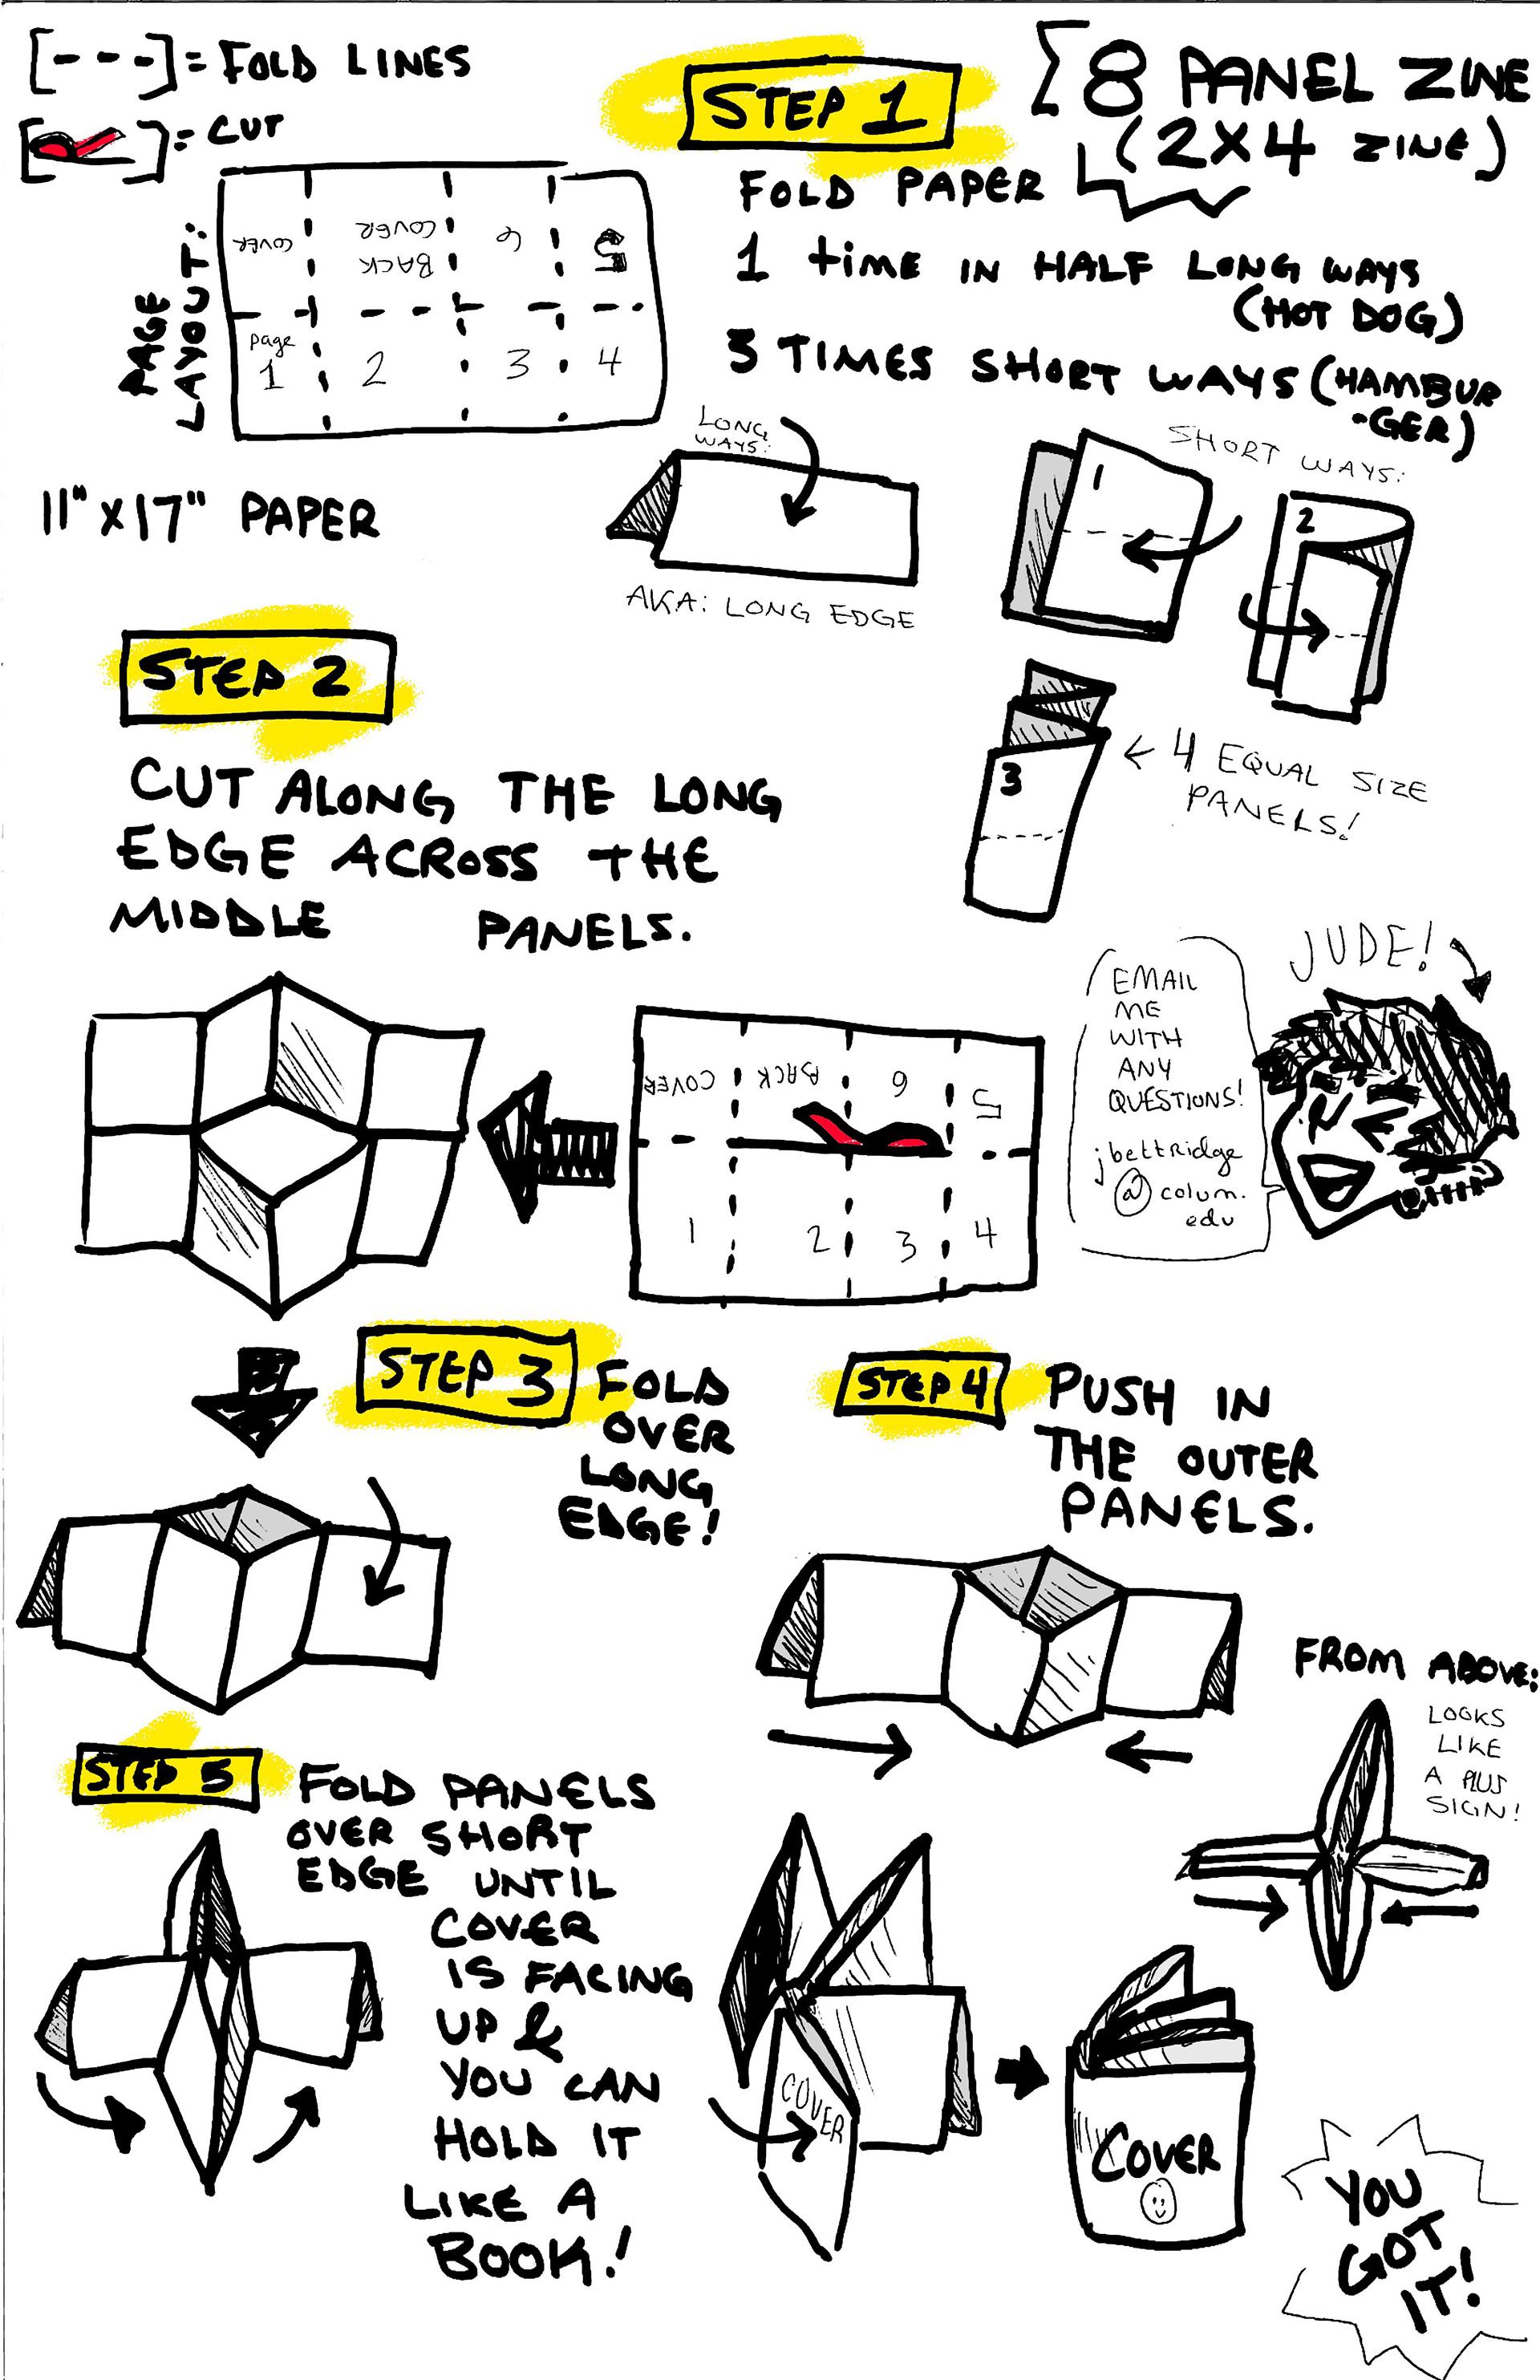 [---] = FOLD LINES
[ ] = CUT
STEP 1
[8 PANEL ZINE
(2X4 ZINE)
FOLD PAPER
1 TIME IN HALF LONG WAYS
(HOT DOG)
3 TIMES SHORT WAYS (HAMBUR
-GER)
PAGE
LAYOUT:
COVER
BACK
COVER
6
5
page
1
2
3
4
11" X 17" PAPER
LONG
WAYS:
AKA: LONG EDGE
SHORT WAYS:
1
2
3
← 4 EQUAL SIZE
PANELS!
STEP 2
CUT ALONG THE LONG
EDGE ACROSS THE
MIDDLE PANELS.
COVER
BACK
6
5
1
2
3
4
JUDE!
EMAIL
ME
WITH
ANY
QUESTIONS!
jbettRidge
@colum.
edu
STEP 3
FOLD
OVER
LONG
EDGE!
STEP 4
PUSH IN
THE OUTER
PANELS.
FROM ABOVE:
LOOKS
LIKE
A PLUS
SIGN!
STEP 5
FOLD PANELS
OVER SHORT
EDGE UNTIL
COVER
IS FACING
UP &
YOU CAN
HOLD IT
LIKE A
BOOK!
COVER
COVER
YOU
GOT
IT!